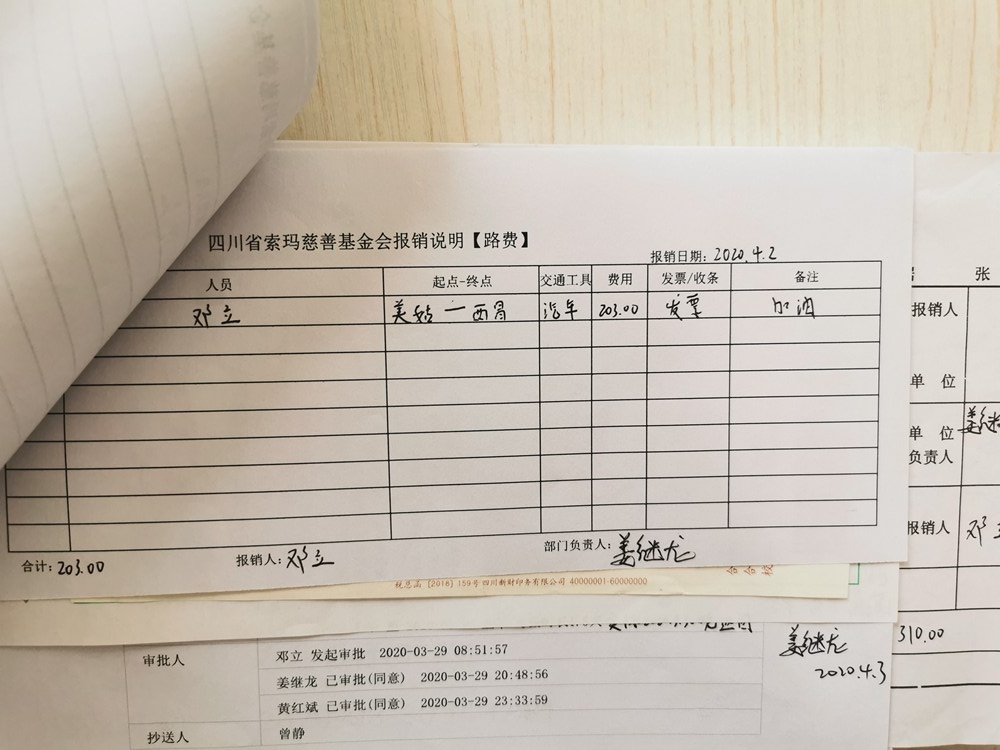 四川省索玛慈善基金会报销说明【路费】
报销日期：2020.4.2
人员 起点-终点 交通工具 费用 发票/收条 备注
邓立 美姑一西昌 汽车 203.00 发票 加油
合计：203.00 报销人：邓立 部门负责人：姜继龙
税总函〔2018〕159号四川新财印务有限公司 40000001-60000000
审批人
邓立 发起审批 2020-03-29 08:51:57
姜继龙 已审批(同意) 2020-03-29 20:48:56
黄红斌 已审批(同意) 2020-03-29 23:33:59
抄送人 曾静
姜继龙
2020.4.3
张
报销人
单 位
单 位
负责人
姜继
报销人
邓立
310.00